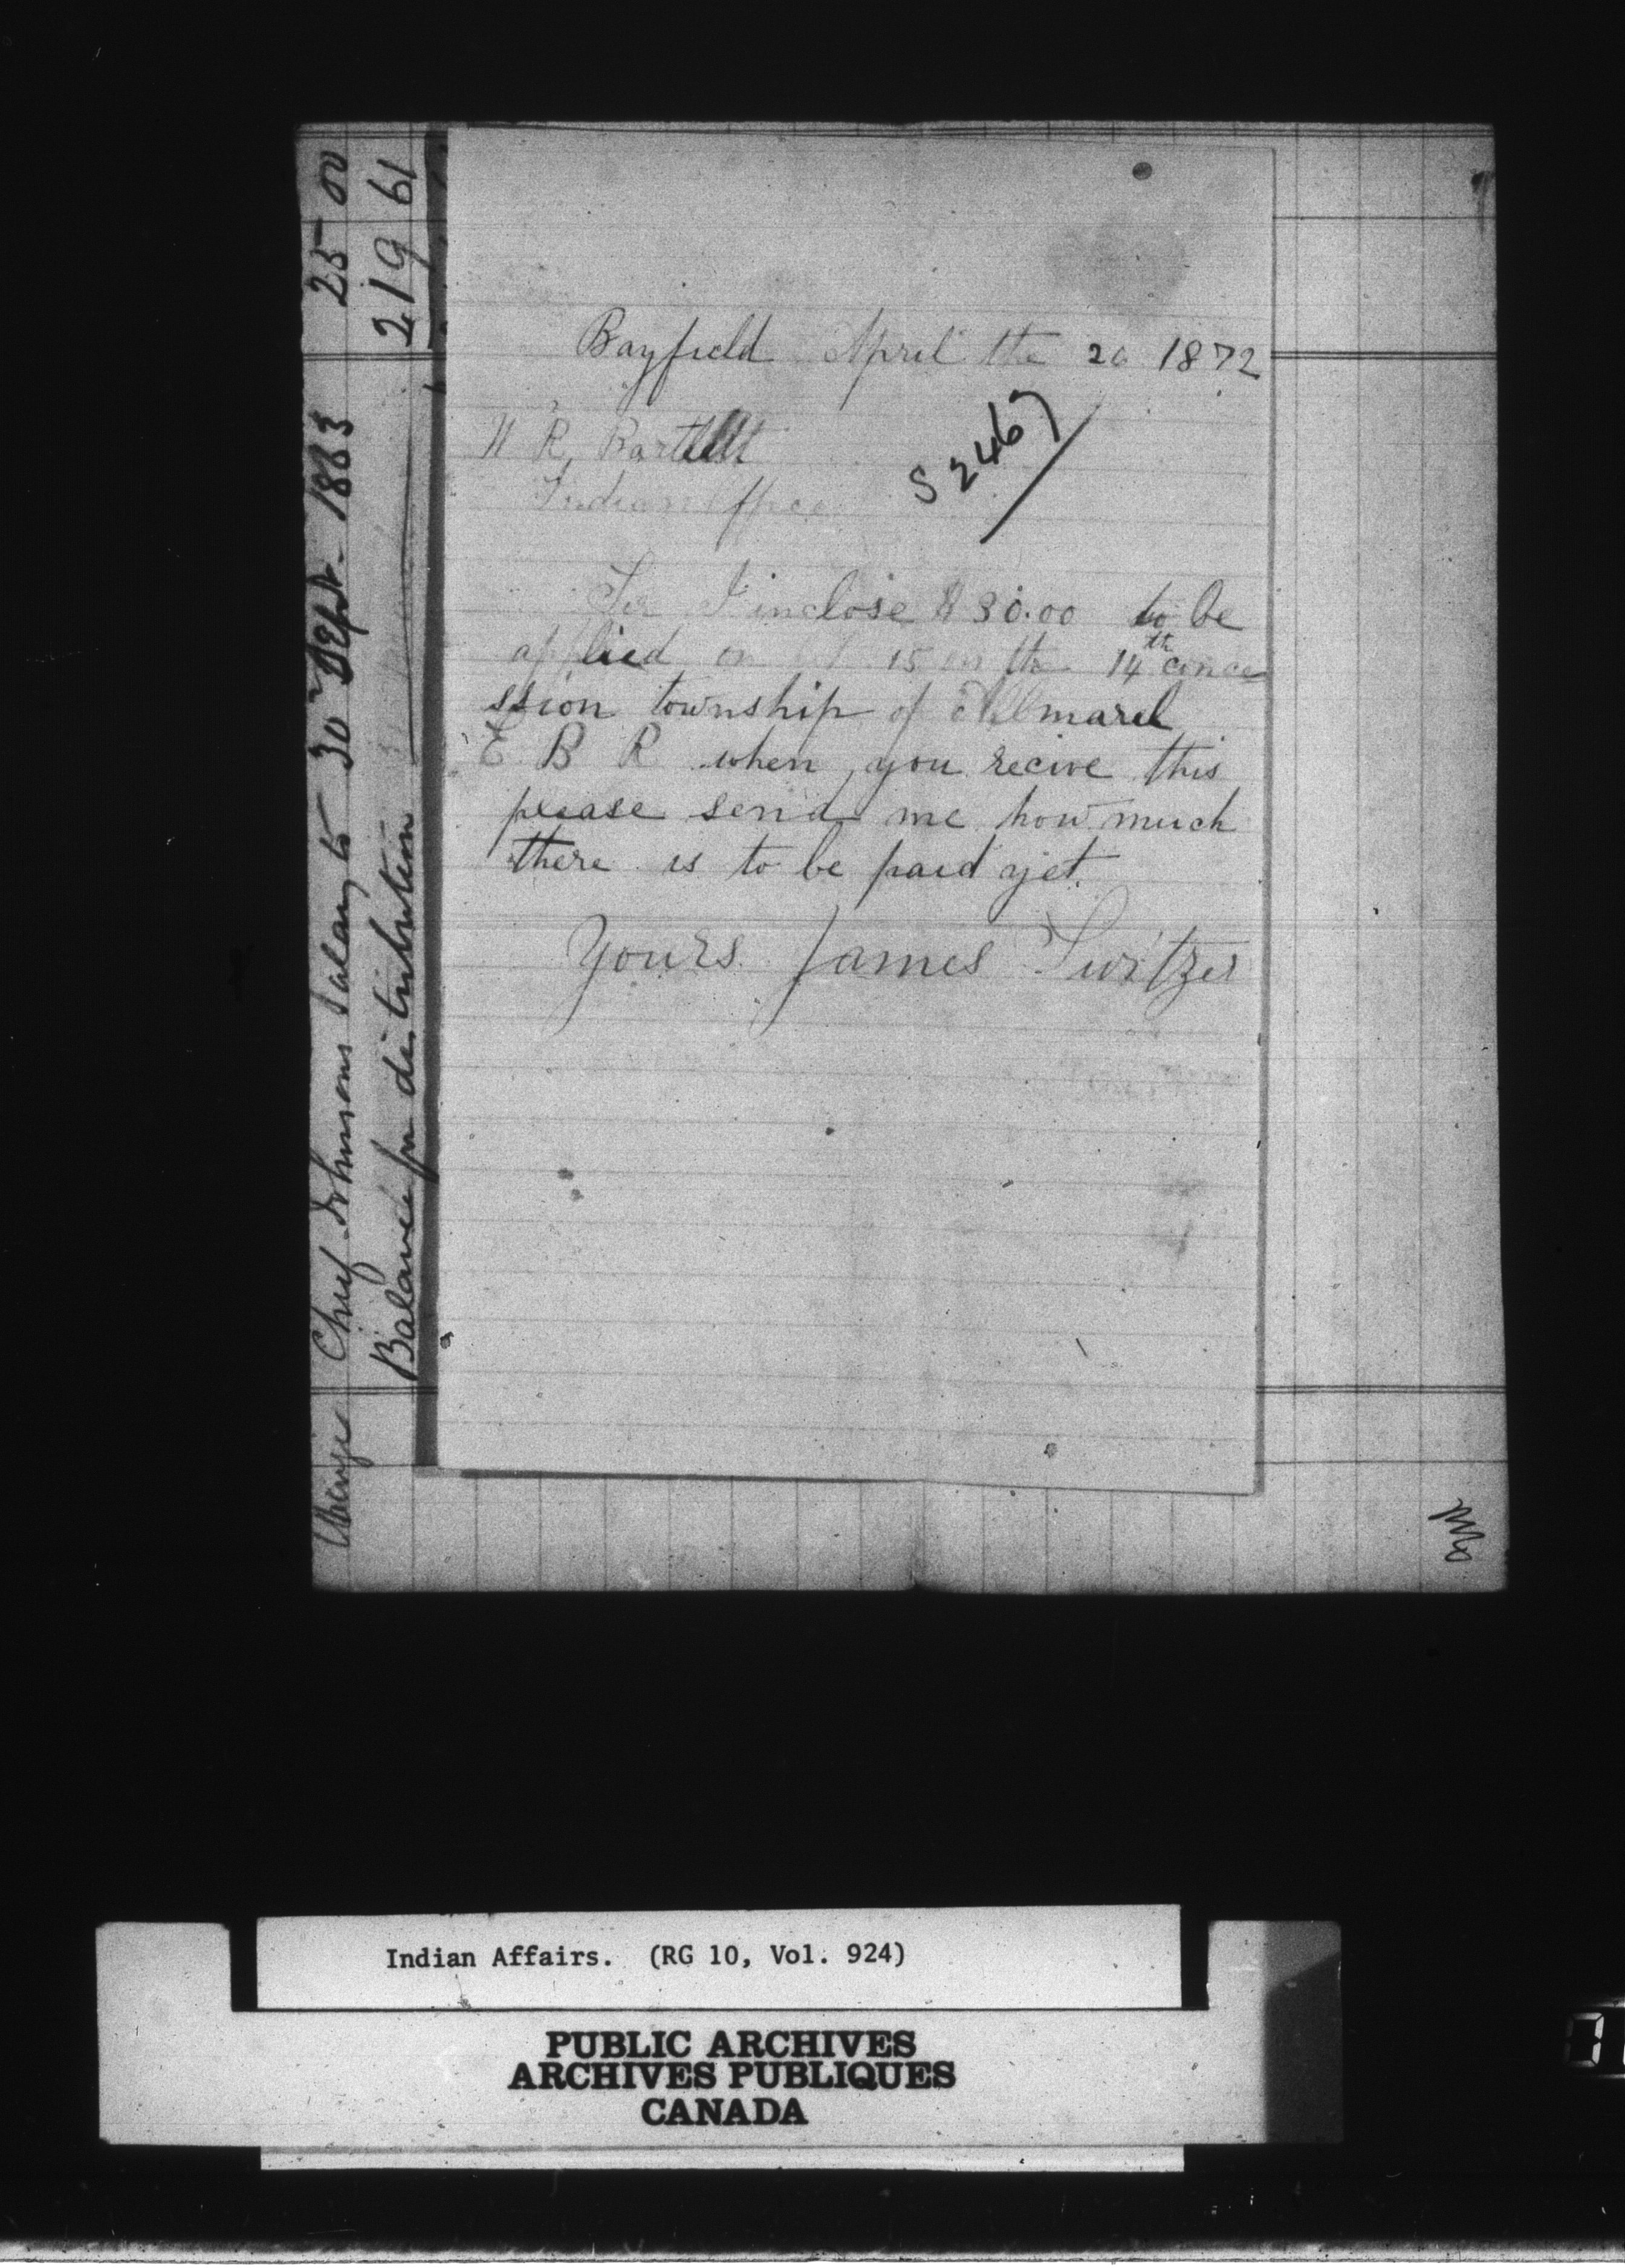 Bayfield April the 20 1872
W R Bartlett
Indian Office
S 2467
Sir I inclose $30.00 to be
applied on lot 15 on the 14th conce
ssion township of Allmarel
E B R when you recive this
please send me how much
there is to be paid yet.
Yours James Switzer
Chief Johnsons Salary to 30 Sept. 1863 25 00
Balance for distribution 219 61
Indian Affairs. (RG 10, Vol. 924)
PUBLIC ARCHIVES
ARCHIVES PUBLIQUES
CANADA